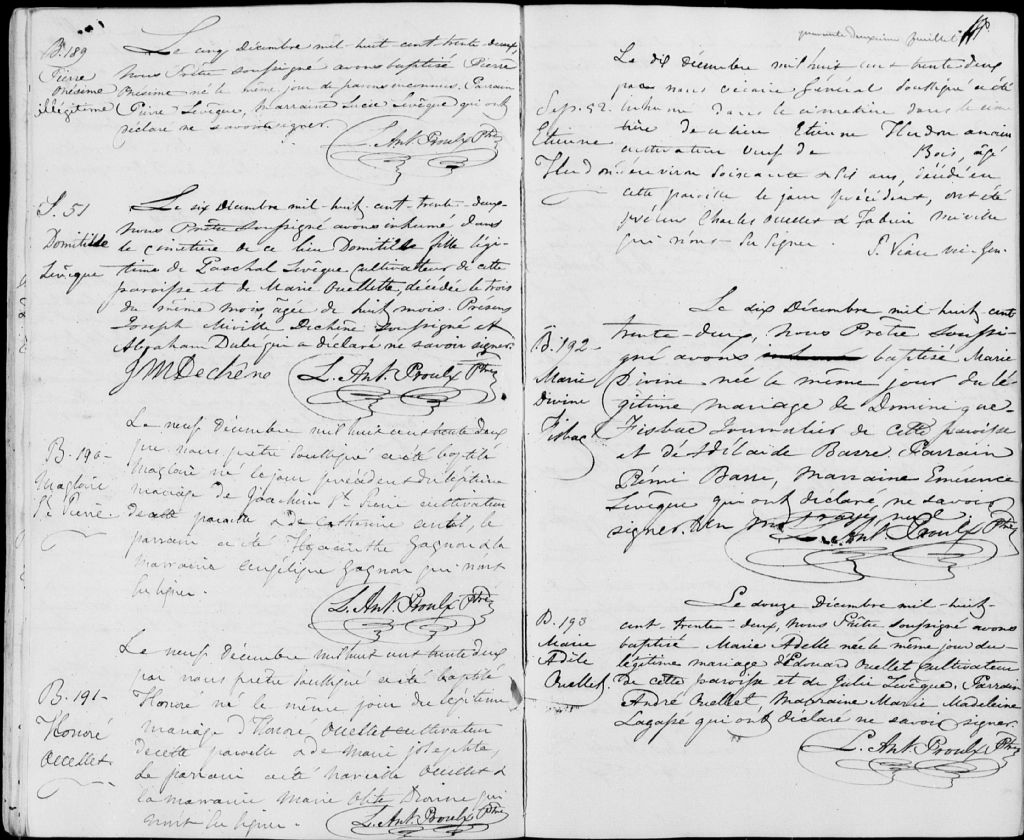 B. 189
Pierre
Onésime
illégitime
Le cinq Décembre mil-huit-cent-trente-deux,
Nous Prêtre soussigné avons baptisé Pierre
Onésime né le même jour de parens inconnus. Parrain
Pierre Levêque, marraine Lucie Levêque qui ont
déclaré ne savoir signer.
L. Ant. Proulx Ptre
S. 51
Domitilde
Levêque
Le six Décembre mil-huit-cent-trente-deux-
Nous Prêtre soussigné avons inhumé dans
le cimetière de ce lieu Domitilde fille légi-
time de Paschal Levêque Cultivateur de cette
paroisse et de Marie Ouellette, décédée le trois
du même mois âgée de huit mois. Présens
Joseph Miville Dechêne soussigné et
Abraham Dubé qui a déclaré ne savoir signer.
JMDechêne L. Ant. Proulx Ptre
B. 190-
Magloire
St. Pierre
Le neuf Décembre mil huit cent trente deux
par nous prêtre soussigné a été baptisé
Magloire né le jour précédent du légitime
mariage de Joachim St. Pierre cultivateur
de cette paroisse & de Catherine, le
parrain a été Hyacinthe Gagnon & la
marraine Angélique Gagnon qui n'ont
su signer.
L. Ant. Proulx Ptre
B. 191-
Honoré
Ouellet
Le neuf Décembre mil huit cent trente deux
par nous prêtre soussigné a été baptisé
Honoré né le même jour du légitime
mariage d'Honoré Ouellet cultivateur
de cette paroisse & de Marie Josephte,
Le parrain a été Ouellet &
la marraine Marie Dionne qui
n'ont su signer.
L. Ant. Proulx Ptre
quarante deuxième feuillet
Sep. 52.
Etienne
Hudon
Le dix décembre mil huit cent trente deux
par nous vicaire Général soussigné a été
inhumé dans le cimetière dans le cime
tière de ce lieu Etienne Hudon ancien
cultivateur veuf de Bois, âgé
d'environ soixante & six ans, décédé en
cette paroisse le jour précédent, ont été
présens Charles Ouellet & Fabien Miville
qui n'ont su signer. S. Viau vic. Gen.
B. 192-
Marie
Divine
Fisbac
Le dix Décembre mil-huit-cent
trente-deux, Nous Prêtre soussi-
gné avons baptisé Marie
Divine née le même jour du lé-
gitime mariage de Dominique
Fisbac Journalier de cette paroisse
et de Adélaïde Basse. Parrain
Rémi Basse, Marraine Emérence
Levêque qui ont déclaré ne savoir
signer. Un mot rayé nul.
L. Ant. Proulx Ptre
B. 193
Marie
Adèle
Ouellet.
Le douze Décembre mil-huit-
cent-trente-deux, Nous Prêtre soussigné avons
baptisé Marie Adelle née le même jour du
légitime mariage d'Edouard Ouellet Cultivateur
de cette paroisse et de Julie Levêque. Parrain
André Ouellet, Marraine Marie Madeleine
Lagassé qui ont déclaré ne savoir signer.
L. Ant. Proulx Ptre